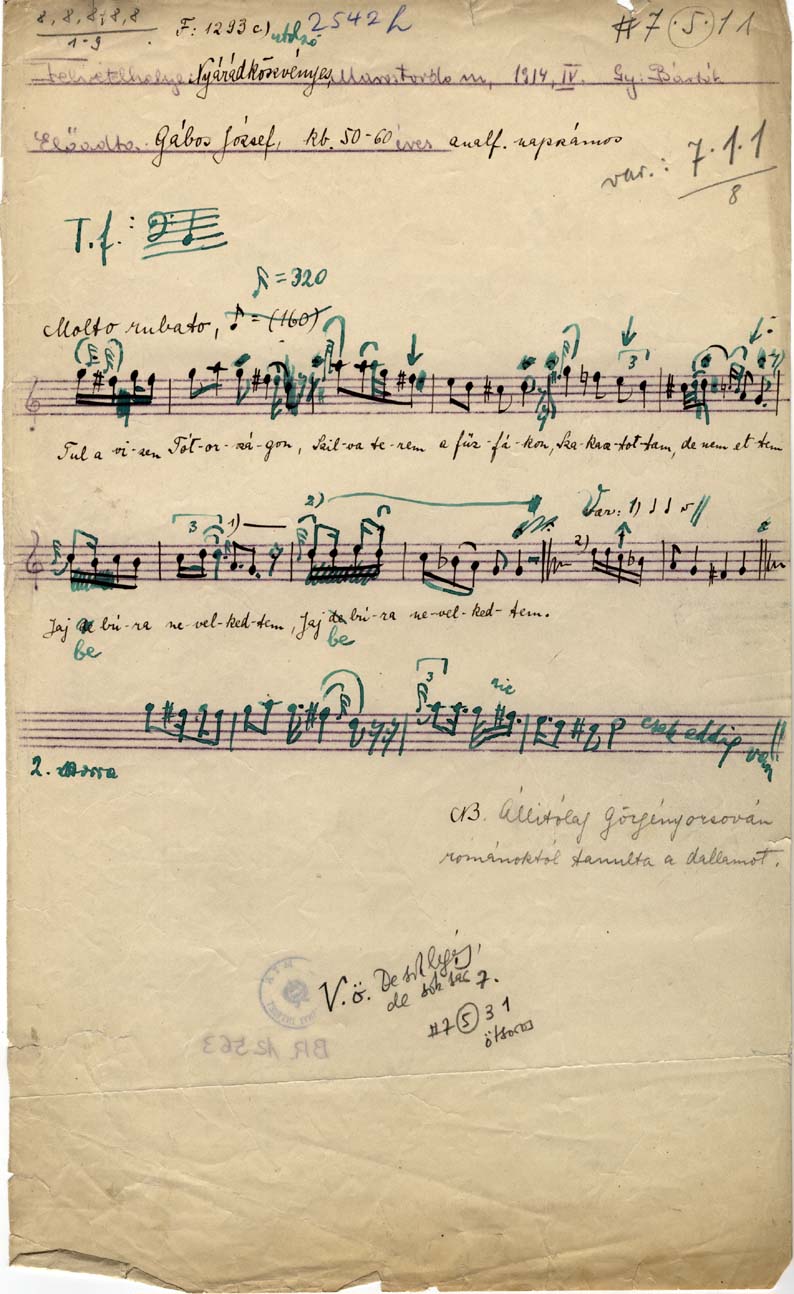 8, 8, 8+8, 8
1-9
F: 1293 c.) utolsó 2542 h
#7 5 1 1
Felvétel helye: Nyárádköszvényes, Marostorda m, 1914, IV. Gy: Bartók
Előadta: Gábos József, kb. 50-60 éves analf. napszámos
var.: 7 1 1
8
T. f.:
= 320
Molto rubato, ♪ = (160)
3
Tul a vi-zen Tót-or-szá-gon, Szil-va te-rem a fűz-fá-kon, Sza-kasz-tot-tam, de nem et-tem
3 1) 2) Var: 1) 2)
Jaj de bú-ra ne-vel-ked-tem, Jaj de bú-ra ne-vel-ked-tem.
be be
3 sic
csak eddig van
2.
NB. Állítólag Görgényorsován
románoktól tanulta a dallamot.
V.ö. De sok
de sok 7.
#7 5 3 1
ötsoros
BR 12563